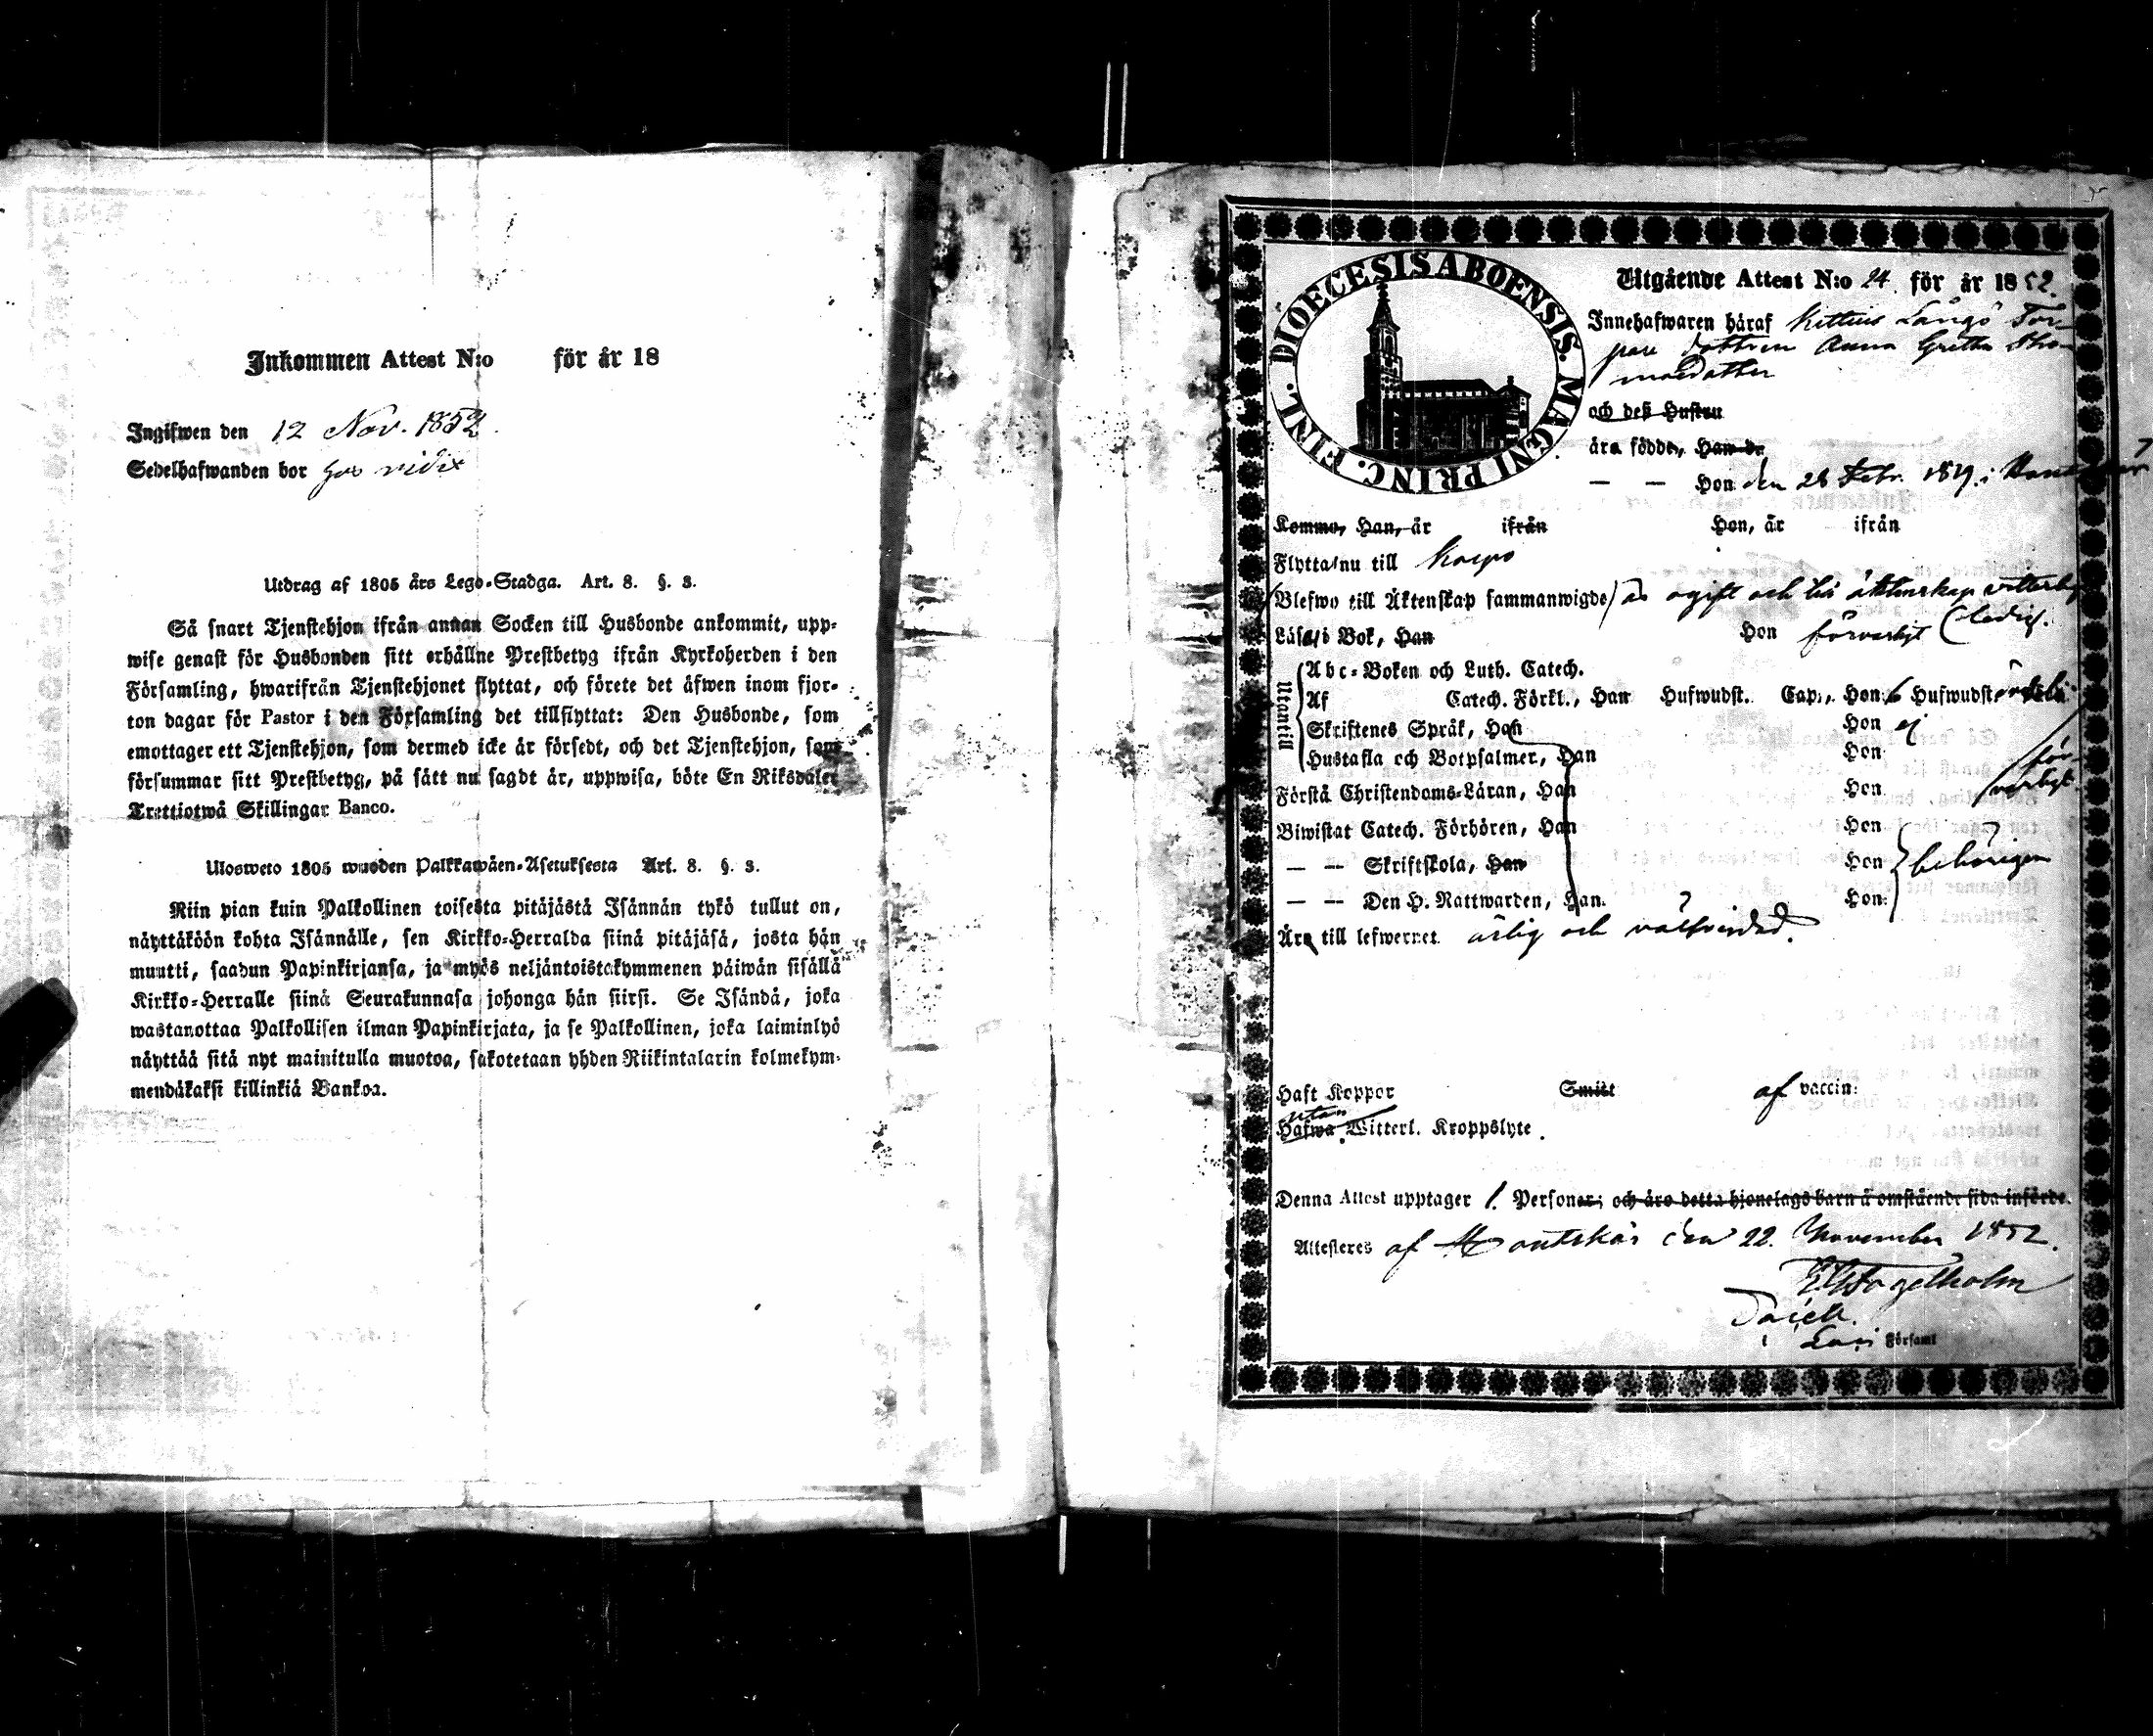 Inkommen Attest N:o för år 18
Ingifwen den 12 Nov. 1852.
Sedelhafwanden bor
Utdrag af 1805 års Lego-Stadga. Art. 8. §. 3.
Så snart Tjenstehjon ifrån annan Socken till Husbonde ankommit, upp-
wise genast för Husbonden sitt erhållne Prestbetyg ifrån Kyrkoherden i den
Församling, hwarifrån Tjenstehjonet flyttat, och förete det äfwen inom fjor-
ton dagar för Pastor i den Församling det tillflyttat: Den Husbonde, som
emottager ett Tjenstehjon, som dermed icke är försedt, och det Tjenstehjon, som
försummar sitt Prestbetyg, på sätt nu sagdt är, uppwisa, böte En Riksdaler
Trettiotwå Skillingar Banco.
Ulosweto 1805 wuoden Palkkawäen-Asetuksesta Art. 8. §. 3.
Niin pian kuin Palkollinen toisesta pitäjästä Isännän tykö tullut on,
näyttäköön kohta Isännälle, sen Kirkko-Herralda siinä pitäjäsä, josta hän
muutti, saadun Papinkirjansa, ja myös neljäntoistakymmenen päiwän sisällä
Kirkko-Herralle siinä Seurakunnasa johonga hän siirsi. Se Isändä, joka
wastanottaa Palkollisen ilman Papinkirjata, ja se Palkollinen, joka laiminlyö
näyttää sitä nyt mainitulla muotoa, sakotetaan yhden Riikintalarin kolmekym-
mendäkaksi killinkiä Bankoa.
DIOECESIS ABOENSIS. MAGNI PRINC. FINL.
Utgående Attest N:o 24. för år 1852.
Innehafwaren häraf Kittuis Långö Tor-
pare dottren Anna Greta Tho-
masdotter
och deß Hustru
äro födde, Han de
— — Hon den 28 Febr. 18
Komme, Han, är ifrån Hon, är ifrån
Flytta nu till Korpo
Blefwo till Äktenskap sammanwigde är ogift och till äktenskap vitterligt
ledig.
Läsa i Bok, Han Hon försvarligt
Utantid
Abc-Boken och Luth. Catech.
Af Catech. Förkl., Han Hufwudst. Cap., Hon 6 Hufwudst.
Skriftenes Språk, Han Hon ej
Hustafla och Botpsalmer, Han Hon
Förstå Christendoms-Läran, Han Hon för-
svarligt.
Biwistat Catech. Förhören, Han Hon
— — Skriftskola, Han Hon behörigen
— — Den H. Nattwarden, Han. Hon:
Äro till lefwernet ärlig och välfrejdad.
Haft Koppor Smitt af vaccin:
utan
Hafwa Witterl. Kroppslyte.
Denna Attest upptager 1. Personer; och äro detta hjonelags barn å omstående sida införde.
Attesteras af Houtskär den 22. November 1852.